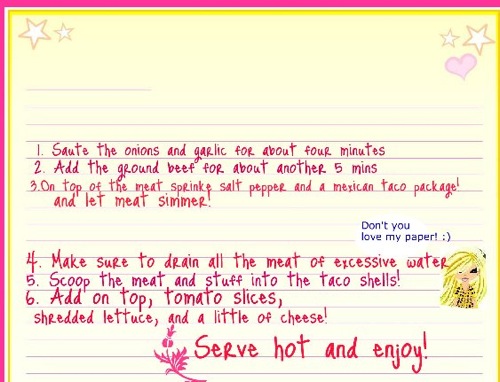 1. Saute the onions and garlic for about four minutes
2. Add the ground beef for about another 5 mins
3.On top of the meat sprinke salt pepper and a mexican taco package!
and let meat simmer!
Don't you
love my paper! :)
4. Make sure to drain all the meat of excessive water
5. Scoop the meat and stuff into the taco shells!
6. Add on top, tomato slices,
shredded lettuce, and a little of cheese!
Serve hot and enjoy!